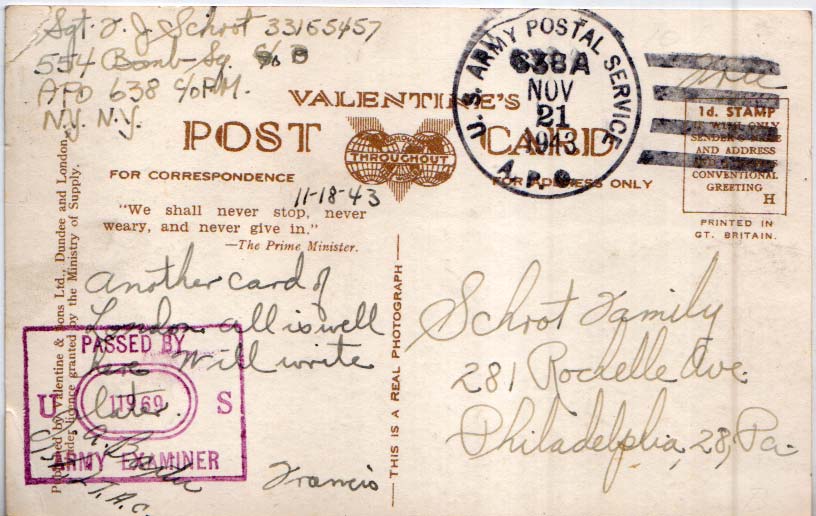 Sgt. F. J. Schrot 33165457
554 Bomb Sq.
APO 638 c/o P.M.
N.Y. N.Y.
U.S. ARMY POSTAL SERVICE
638A
NOV
21
1943
A.P.O.
Free
VALENTINE'S
POST CARD
THROUGHOUT
FOR CORRESPONDENCE
FOR ADDRESS ONLY
1d. STAMP
IF WITH ONLY
SENDER'S
AND ADDRESS
CONVENTIONAL
GREETING
H
PRINTED IN
GT. BRITAIN.
11-18-43
"We shall never stop, never
weary, and never give in."
—The Prime Minister.
Another card of
London. All is well
here Will write
later.
Francis
PASSED BY
U S
ARMY EXAMINER
Schrot Family
281 Rochelle Ave.
Philadelphia, 28, Pa.
THIS IS A REAL PHOTOGRAPH
Produced by Valentine & Sons Ltd., Dundee and London,
under licence granted by the Ministry of Supply.